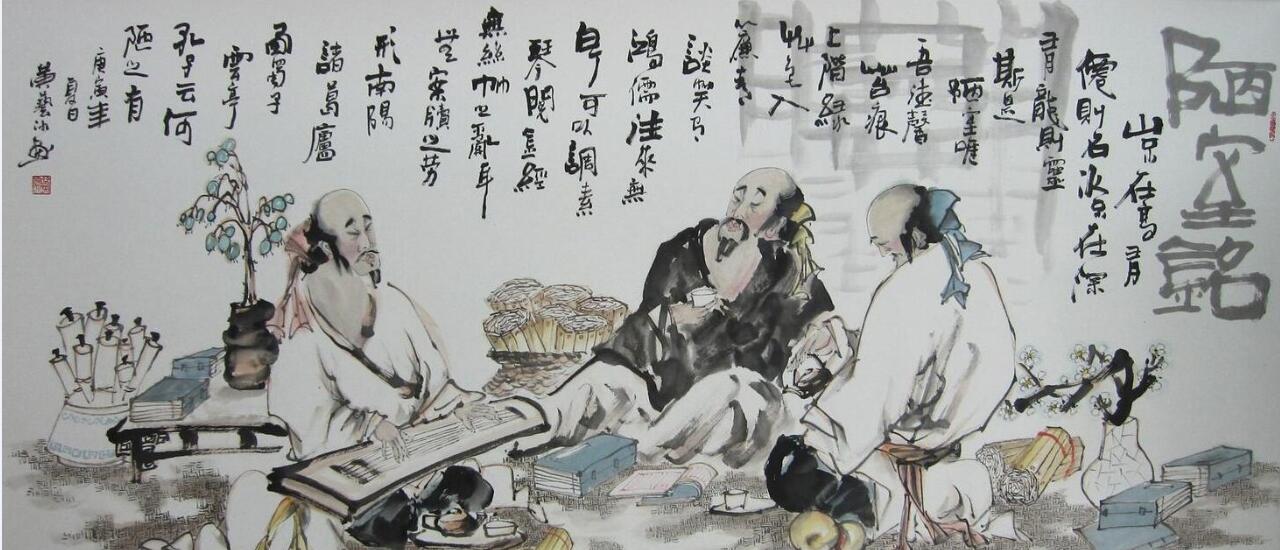 陋室銘
山不在高有
僊則名水不在深
有龍則靈
斯是
陋室唯
吾德馨
苔痕
上階緑
艸色入
簾青
談笑有
鴻儒往來無
白丁可以調素
琴閲金經
無絲竹之亂耳
無案牘之勞
形南陽
諸葛廬
西蜀子
雲亭
孔子云何
陋之有
庚寅年
夏日
黄藝